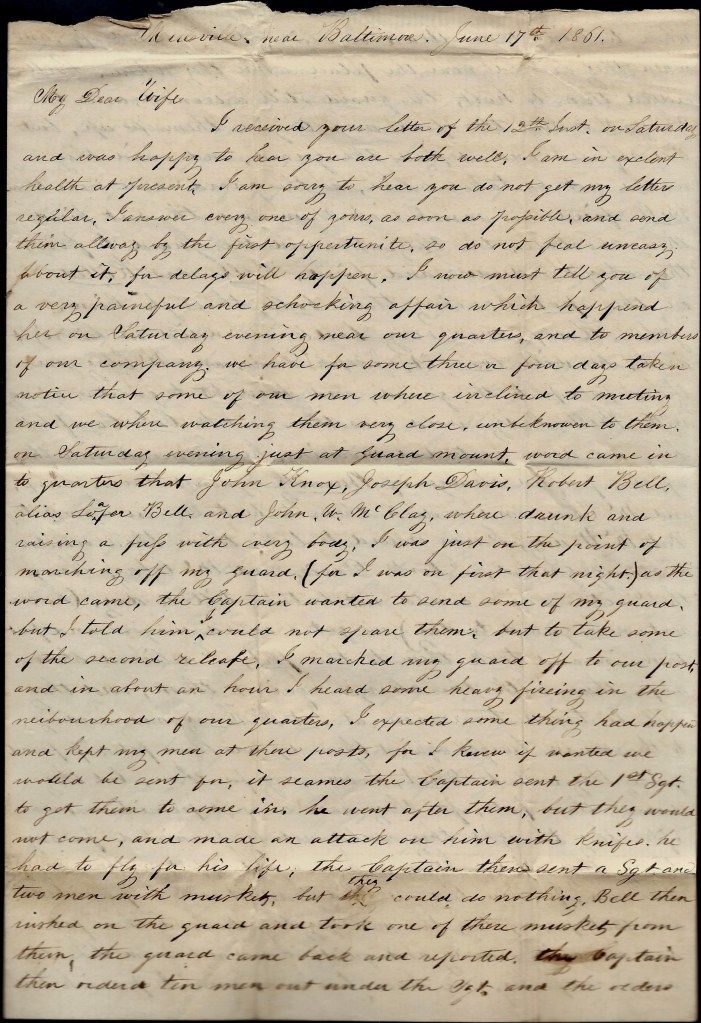 near Baltimore. June 17th 1861.
My Dear Wife
I received your letter of the 12th Inst. on Saturday
and was happy to hear you are both well, I am in exclent
health at present, I am sorry to hear you do not get my letters
regular, I answer every one of yours, as soon as possible, and send
them allway by the first oppertunite, so do not feal uneasy
about it, for delays will happen, I now must tell you of
a very paineful and schocking affair which happend
her on Saturday evening near our quarters, and to members
of our company. we have for some three or four days taken
notice that some of our men where inclined to mutiny
and we where watching them very close, unbeknowen to them.
on Saturday evening just at guard mount, word came in
to quarters that John Knox, Joseph Davis, Robert Bell,
alias Lofer Bell, and John, W. McClay, where drunk and
raising a fuss with every body, I was just on the point of
marching off my guard, (for I was on first that night,) as the
word came, the Captain wanted to send some of my guard,
but I told him I could not spare them, but to take some
of the second releafe, I marched my guard off to our post,
and in about an hour I heard some heavy fireing in the
neibourhood of our quarters, I expected some thing had happen
and kept my men at there posts, for I knew if wanted we
would be sent for, it seames the Captain sent the 1st Sgt.
to get them to come in, he went after them, but they would
not come, and made an attack on him with knifes. he
had to fly for his life, the Captain then sent a Sgt and
two men with musket, but they could do nothing, Bell then
rushed on the guard and took one of there muskets from
them, the guard came back and reported. the Captain
then orderd ten men out under the Sgt. and the orders